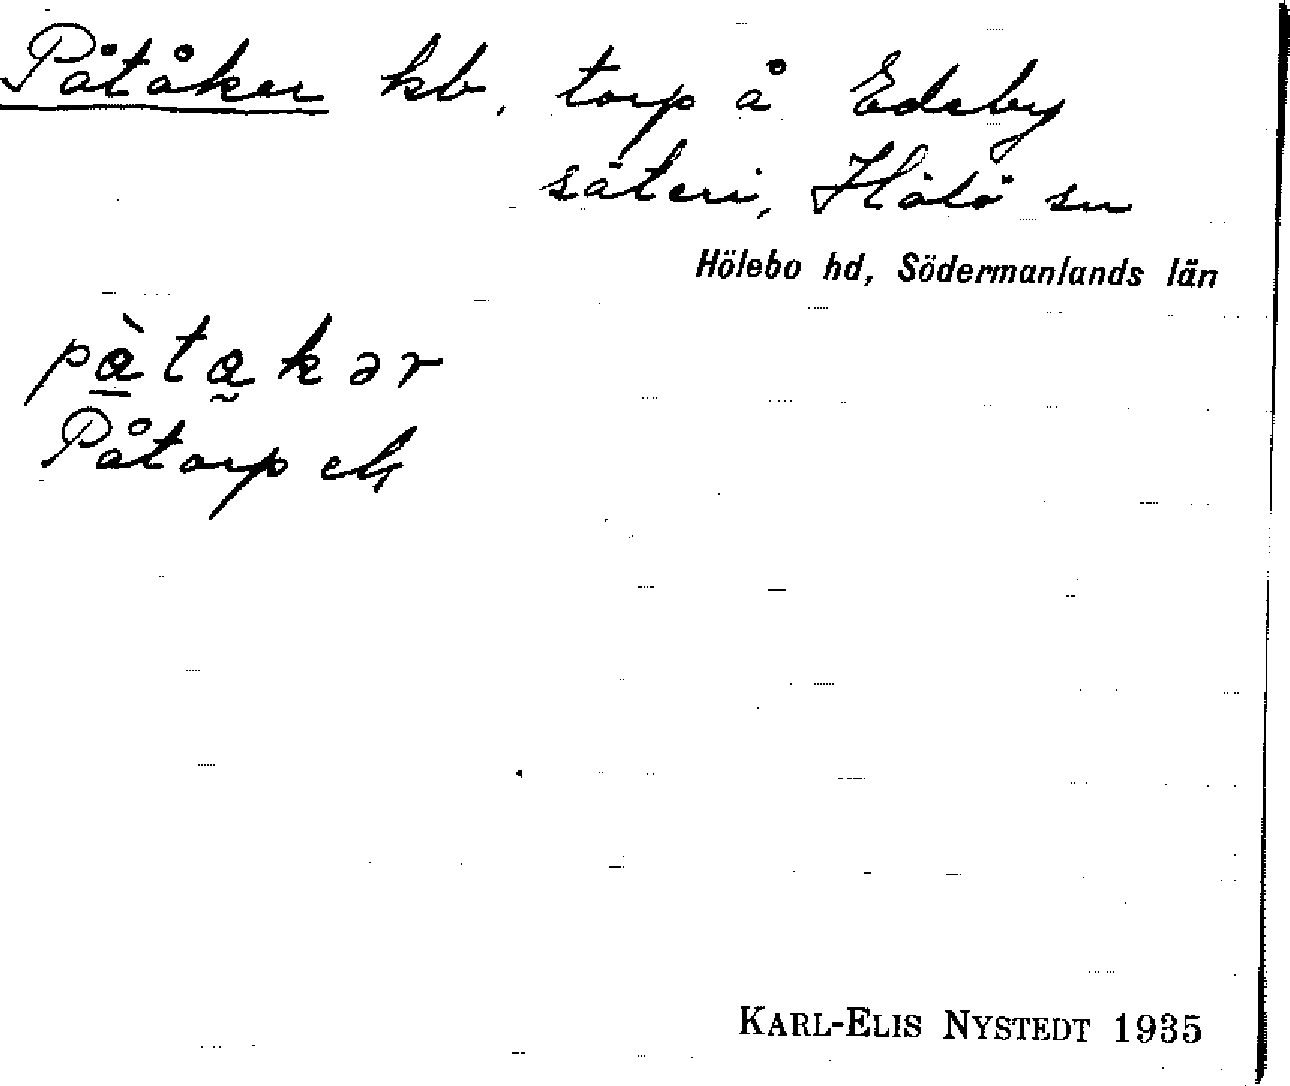 Påtåker kb. torp å Edeby
säteri, Hölö sn
Hölebo hd, Södermanlands län
pàtakər
Påtorp ek
KARL-ELIS NYSTEDT 1935